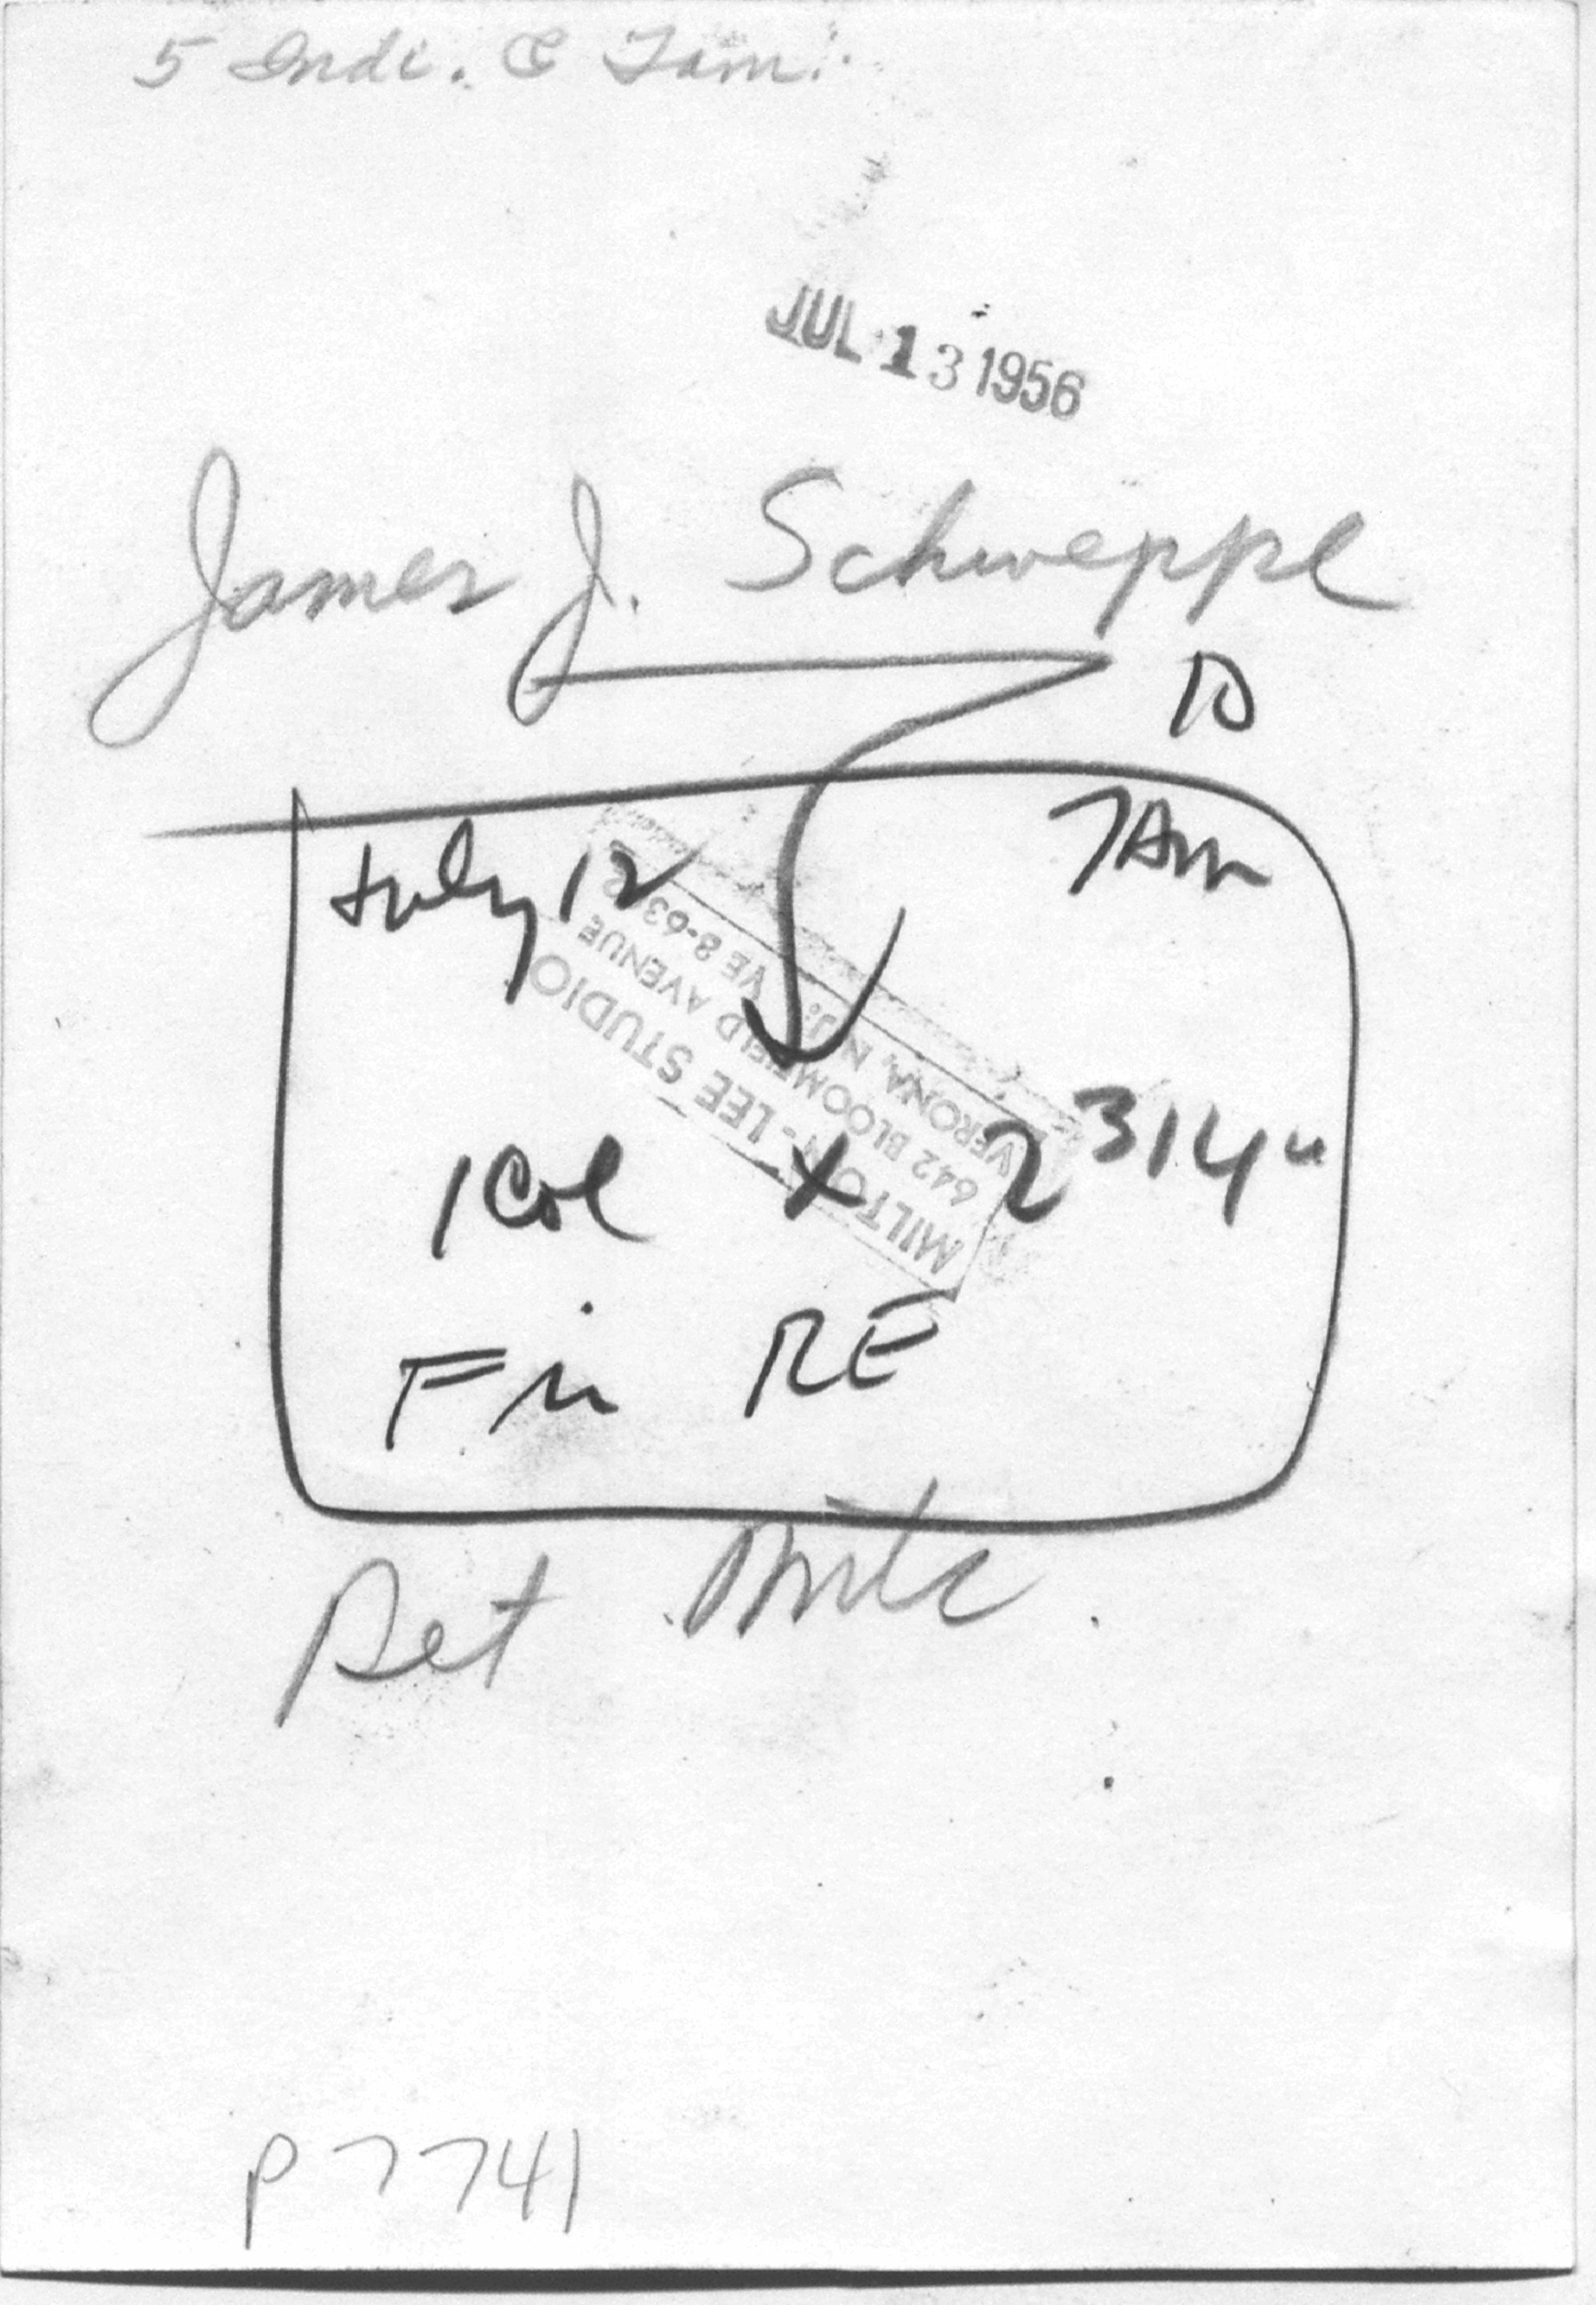 5 Indi. & Fam.
JUL 13 1956
James J. Schweppe
July 12 7 Am
MILTON - LEE STUDIO
642 BLOOMFIELD AVENUE
VERONA, N. J. VE 8-63
1 Col x 2 3/4"
Fin RE
Ret
P 7741